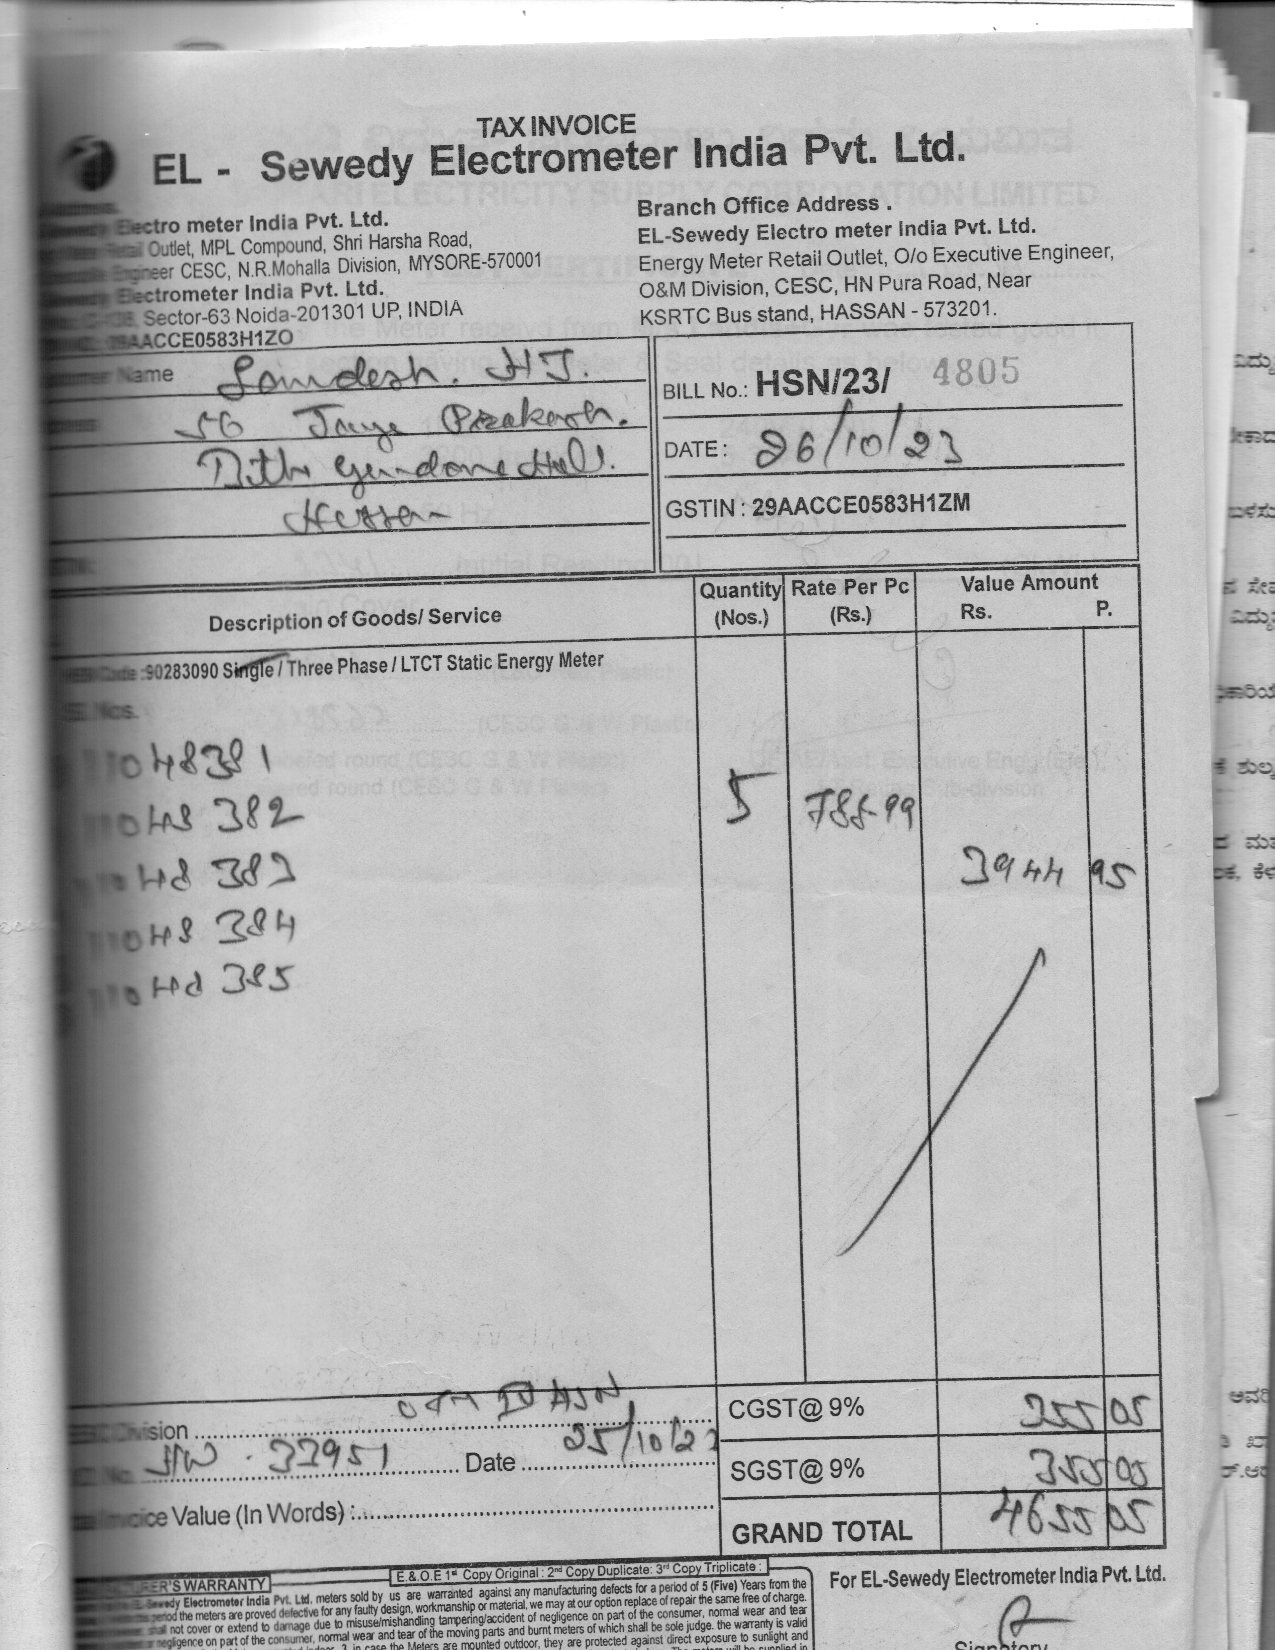 TAX INVOICE
EL - Sewedy Electrometer India Pvt. Ltd.
Electro meter India Pvt. Ltd.
Retail Outlet, MPL Compound, Shri Harsha Road,
Engineer CESC, N.R.Mohalla Division, MYSORE-570001
Electrometer India Pvt. Ltd.
Sector-63 Noida-201301 UP, INDIA
29AACCE0583H1ZO
Branch Office Address .
EL-Sewedy Electro meter India Pvt. Ltd.
Energy Meter Retail Outlet, O/o Executive Engineer,
O&M Division, CESC, HN Pura Road, Near
KSRTC Bus stand, HASSAN - 573201.
Name H J.
56 Prakash.
Hassan
BILL No.: HSN/23/ 4805
DATE : 26/10/23
GSTIN : 29AACCE0583H1ZM
Description of Goods/ Service
Quantity (Nos.)
Rate Per Pc (Rs.)
Value Amount
Rs. P.
Code :90283090 Single / Three Phase / LTCT Static Energy Meter
Nos.
11048381
11048 382
11048 383
11048 384
11048 385
5 788-99
3944 95
Division O&M HSN
33951 Date 25/10/23
Invoice Value (In Words) :
CGST@ 9% 355 05
SGST@ 9% 355 05
GRAND TOTAL 4655 05
E.&.O.E 1st Copy Original : 2nd Copy Duplicate: 3rd Copy Triplicate :
WARRANTY
Sewedy Electrometer India Pvt. Ltd. meters sold by us are warranted against any manufacturing defects for a period of 5 (Five) Years from the
period the meters are proved defective for any faulty design, workmanship or material, we may at our option replace of repair the same free of charge.
shall not cover or extend to damage due to misuse/mishandling tampering/accident of negligence on part of the consumer, normal wear and tear
negligence on part of the consumer, normal wear and tear of the moving parts and burnt meters of which shall be sole judge. the warranty is valid
in case the Meters are mounted outdoor, they are protected against direct exposure to sunlight and
For EL-Sewedy Electrometer India Pvt. Ltd.
Signatory